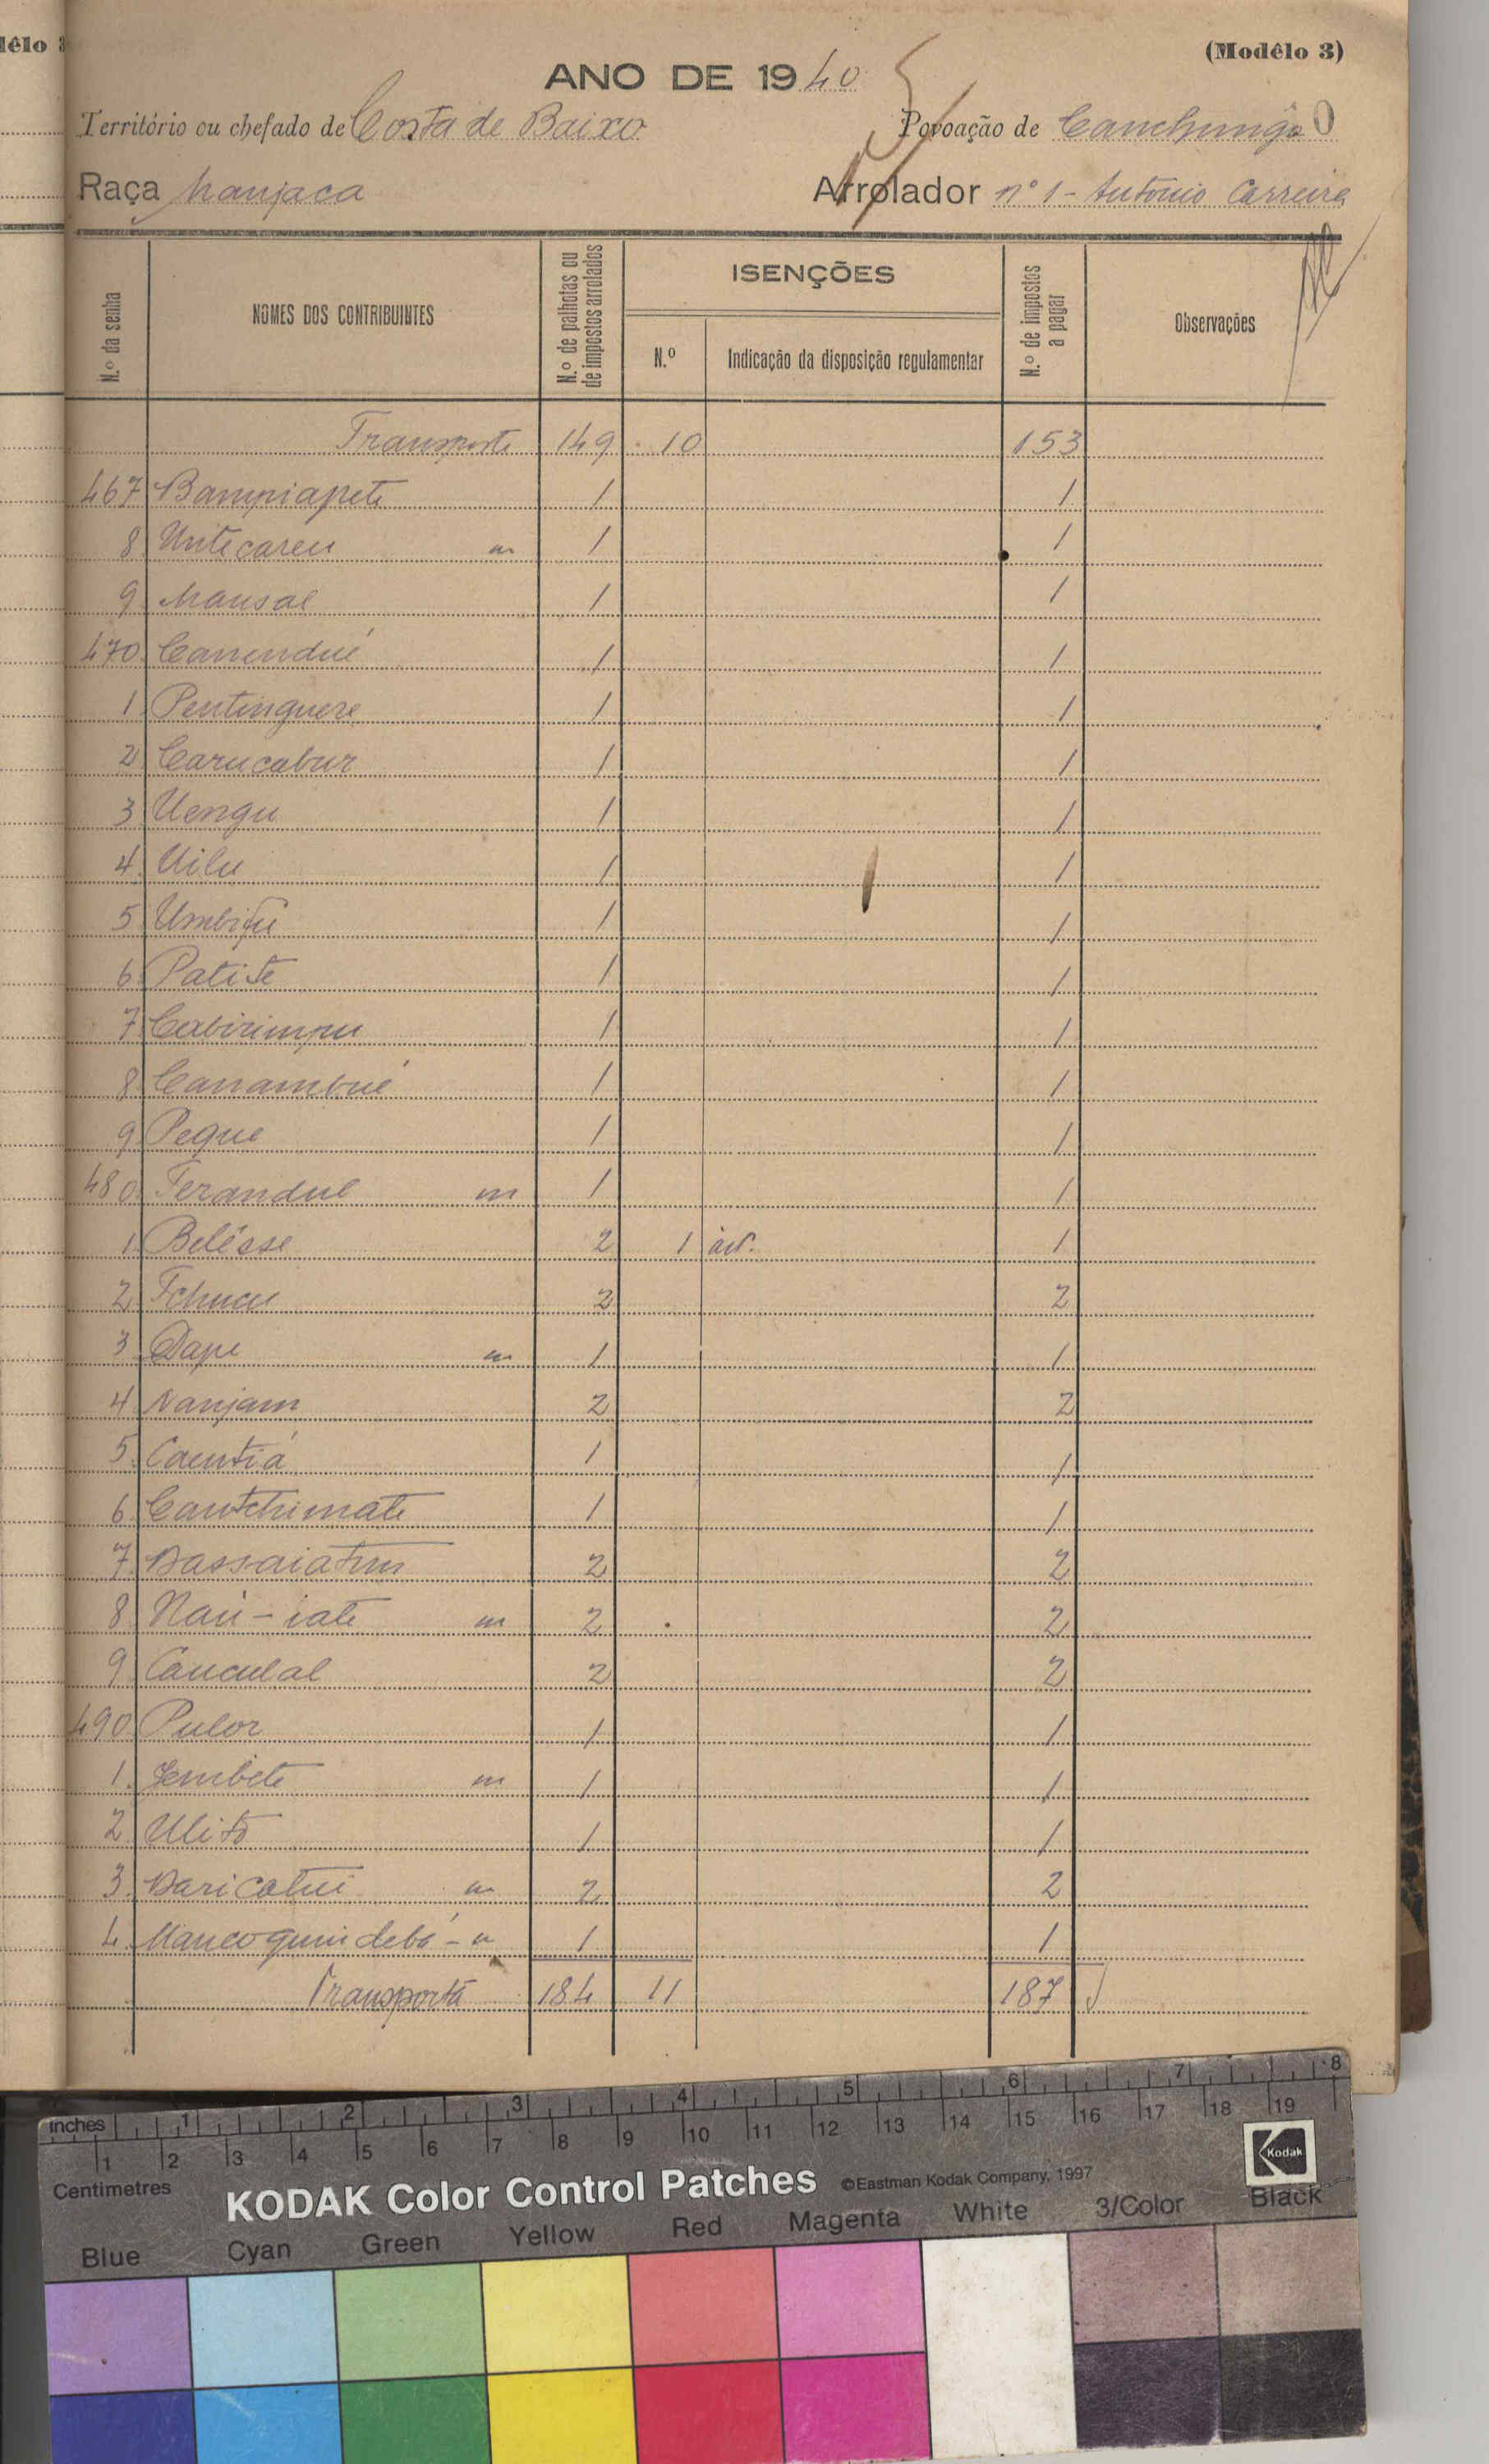 (Modêlo 3)
ANO DE 1940
Território ou chefado de Costa de Baixo Povoação de Canchungo
Raça Manjaca Arrolador nº 1 - António Carreira
N.º da senha
NOMES DOS CONTRIBUINTES
N.º de palhotas ou de impostos arrolados
ISENÇÕES
N.º
Indicação da disposição regulamentar
N.º de impostos a pagar
Observações
Transporte 149 10 153
467 Bampiapete 1 1
8 Untecareu m 1 1
9 Mansal 1 1
470 Canendué 1 1
1 Pentinguere 1 1
2 Carucabur 1 1
3 Uengu 1 1
4 Uilu 1 1
5 1 1
6 Patite 1 1
7 Cabirimpu 1 1
8 Canambué 1 1
9 Peque 1 1
480 Ferandul m 1 1
1 Belésse 2 1 1
2 Tchucu 2 2
3 Dape m 1 1
4 Nanjam 2 2
5 Caentiá 1 1
6 Cantchimate 1 1
7 Bassaiatum 2 2
8 Naú - iate m 2 2
9 Cauculal 2 2
490 Pulor 1 1
1 Jembete m 1 1
2 Ulito 1 1
3 Baricatui m 2 2
4 1 1
Transporta 184 11 187
inches 1 2 3 4 5 6 7 8
1 2 3 4 5 6 7 8 9 10 11 12 13 14 15 16 17 18 19
Centimetres
KODAK Color Control Patches ©Eastman Kodak Company, 1997 Kodak
Blue Cyan Green Yellow Red Magenta White 3/Color Black